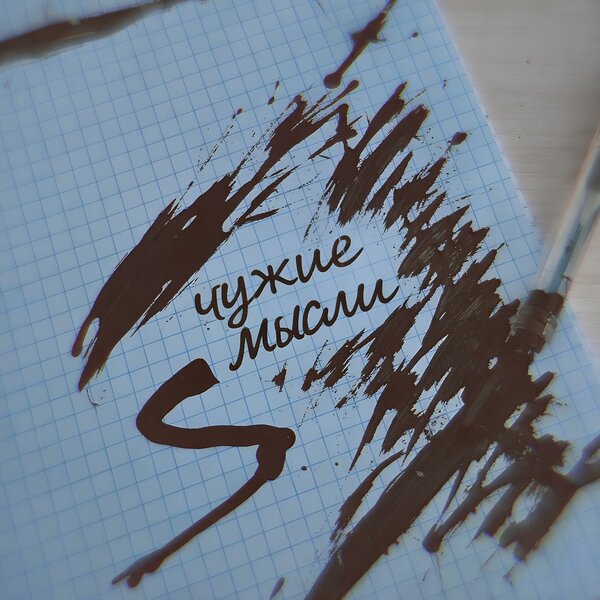 чужие
мысли